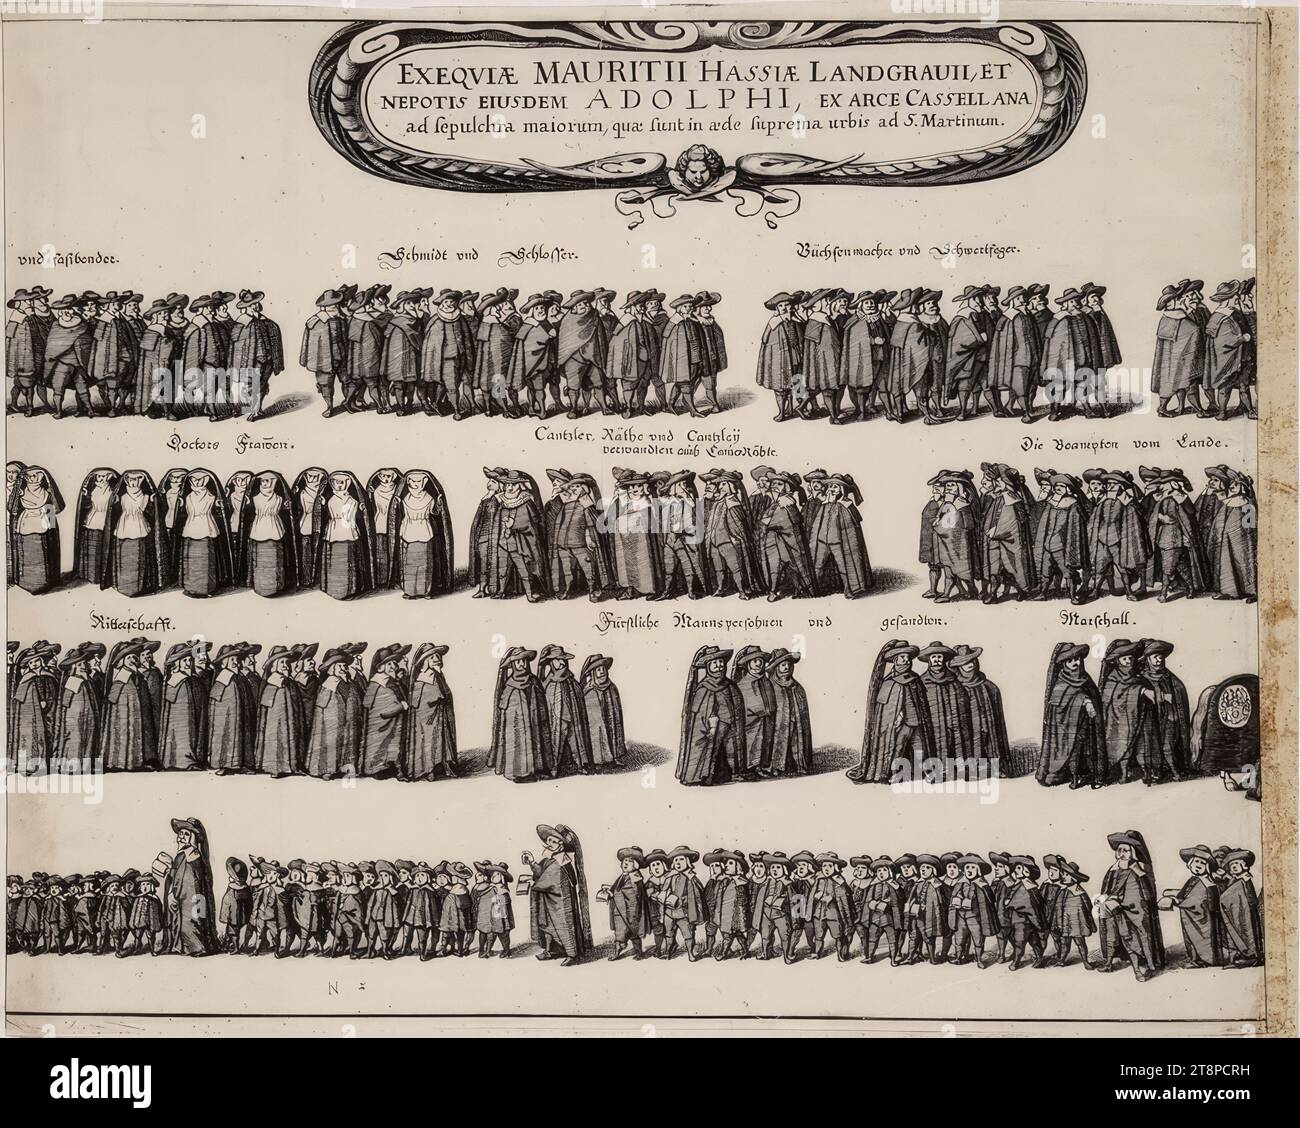 EXEQVIÆ MAURITII HASSIÆ LANDGRAUII, ET
NEPOTIS EIUSDEM ADOLPHI, EX ARCE CASSELLANA
ad sepulchra maiorum, quæ sunt in æde suprema urbis ad S. Martinum.
und fasibender.
Schmidt vnd Schlosser.
Büchsenmacher vnd Schwertfeger.
Doctors Frawen.
Cantzler, Räthe vnd Cantzleÿ
verwandten auß
Die Beampten vom Lande.
Ritterschafft.
Fürstliche Mannspersohnen vnd gesandten.
Marschall.
N
alamy
Image ID: 2T8PCRH
www.alamy.com